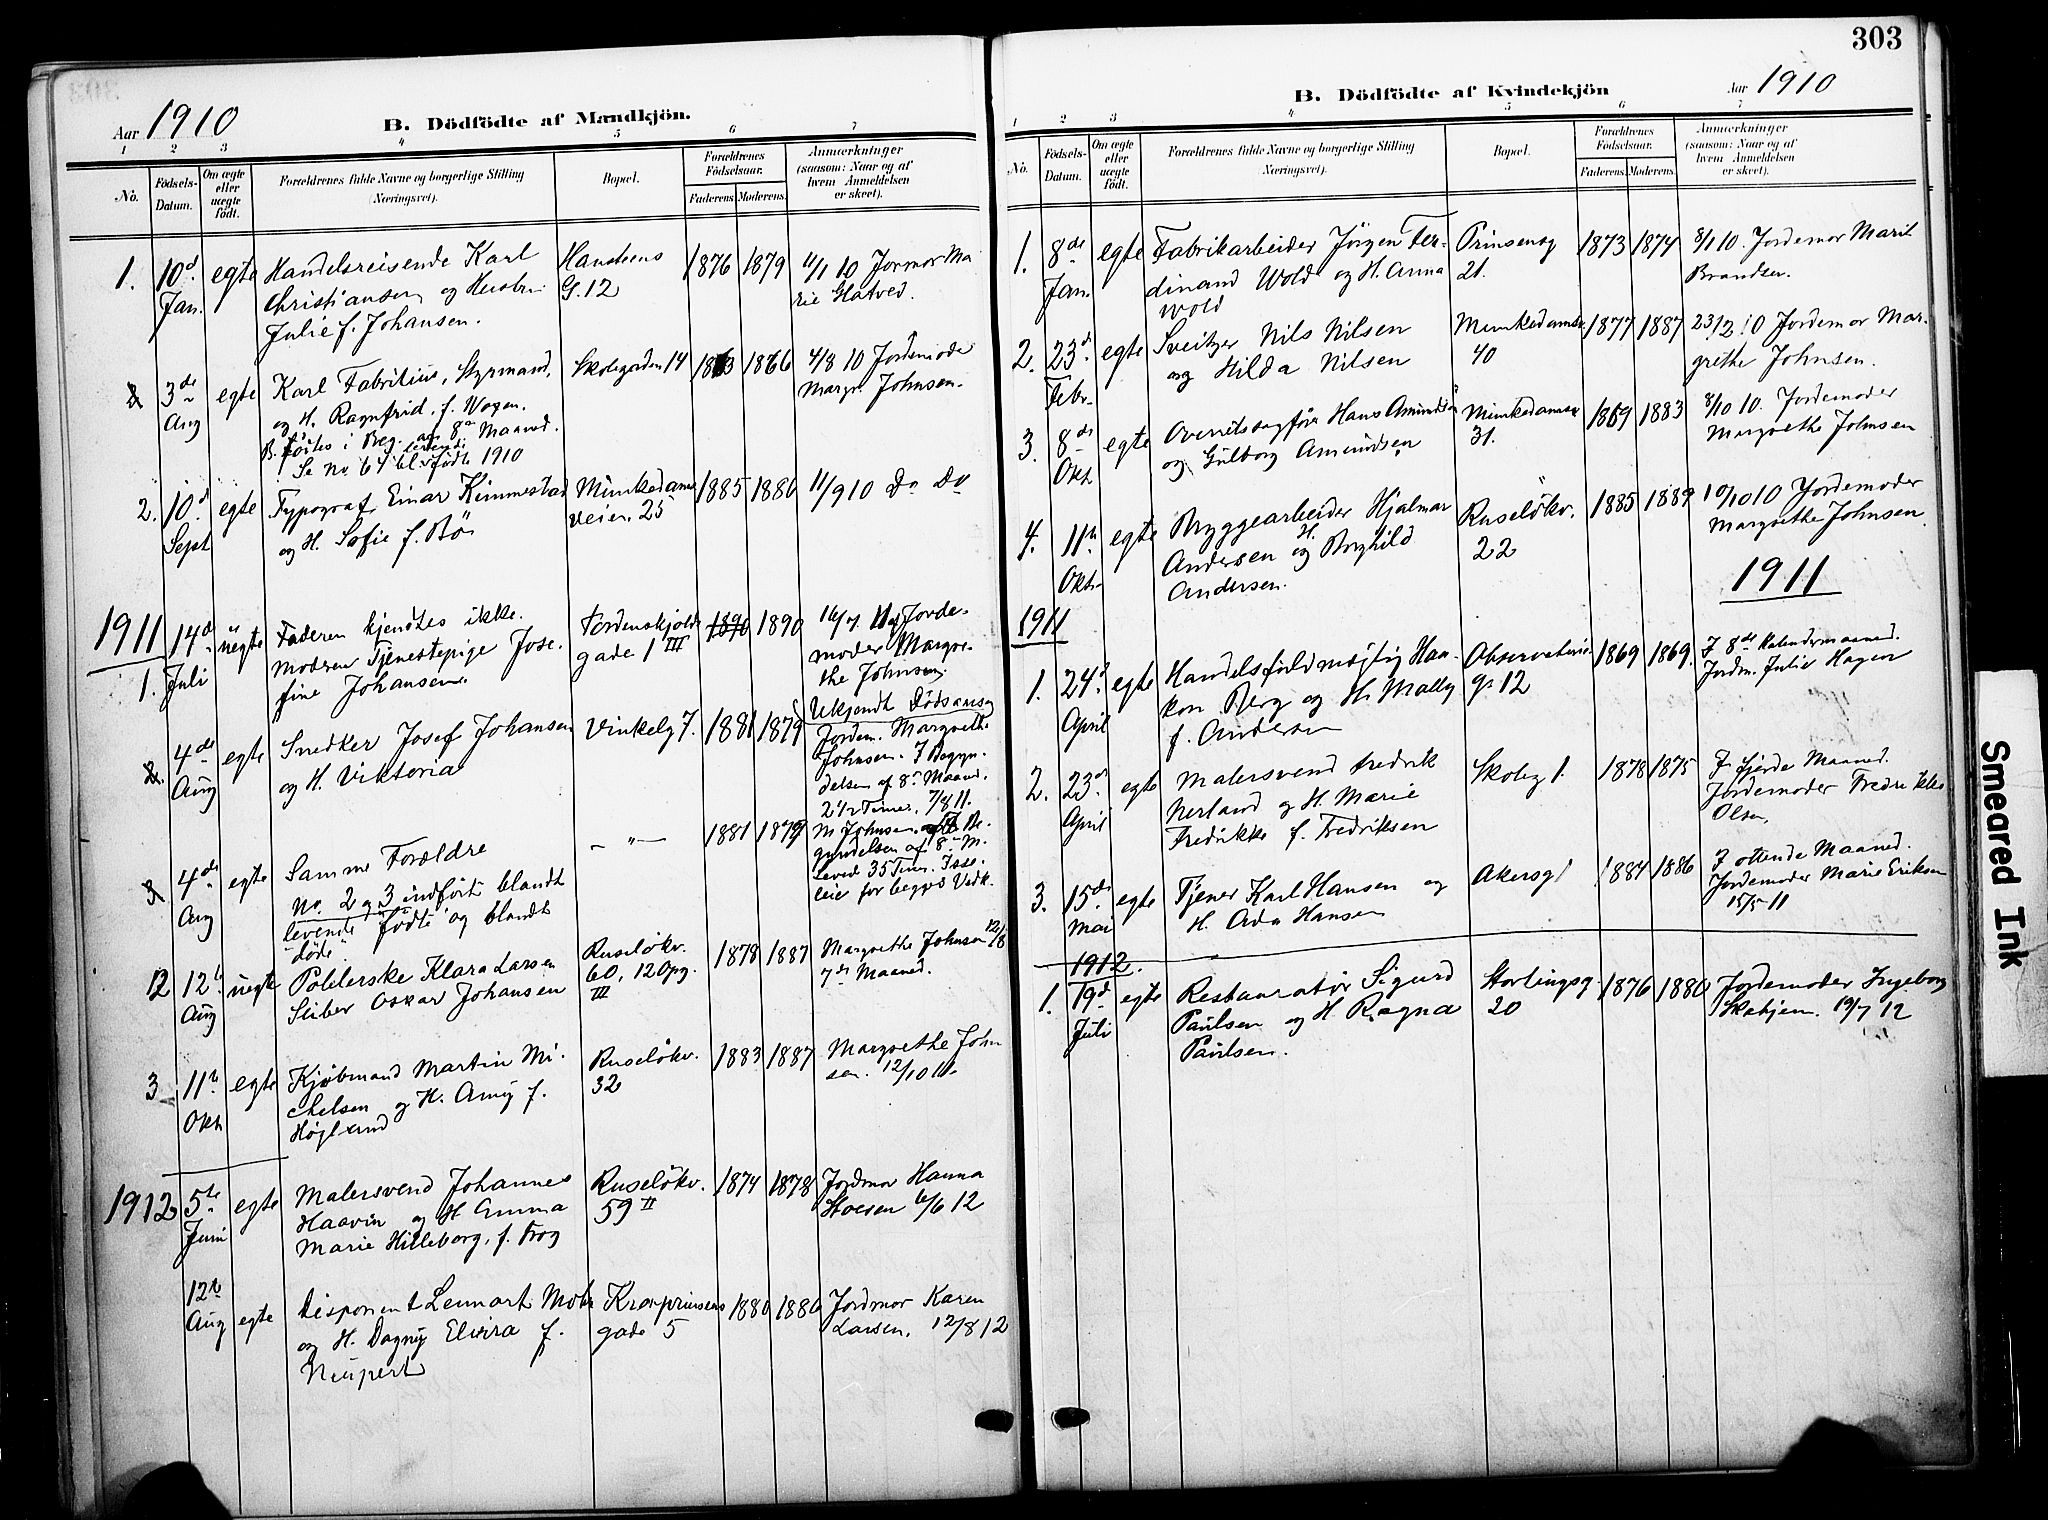 Aar 1910
B. Dödfödte af Mandkjön.
1 2 3 4 5 6 7
No.
Födsels-
Datum.
Om ægte
eller
uægte
födt.
Forældrenes fulde Navne og borgerlige Stilling
(Næringsvei).
Bopæl.
Forældrenes
Födselsaar.
Faderens Moderens
Anmærkninger
(saasom: Naar og af
hvem Anmeldelsen
er skeet).
1. 10d egte Handelsreisende Karl Hansteens 1876 1879 11/1 10 Jormor Ma
Jan. Christiansen og Hustru G. 12 rie Glatved.
Julie f. Johansen.
2 3de egte Karl Fabritius, Styrmand, Skolegaden 14 1863 1866 4/8 10 Jordemoder
Aug og H. Ragnfrid, f. Wogen. Margr. Johnsen.
B. födtes i Beg. af 8de Maaned.
Se No 64 bl. levende födte 1910
2. 10d egte Typograf Einar Kimmestad Munkedams 1885 1886 11/9 10 Do Do
Sept og H. Sofie f. Bö veien 25
1911 14d uegte Faderen kjendtes ikke. Tordenskjolds 1890 1890 16/7 11 Jorde-
1. Juli Modren Tjenestepige Jose- gade 1 III moder Margre-
fine Johansen. the Johnsen
2. 4de egte Snedker Josef Johansen Vinkelg 7. 1881 1879 Ukjendt Dödsaarsag
Aug og H. Viktoria Jordem. Margrethe
Johnsen. I Begyn-
delsen af 8de Maaned.
2 1/2 Timer. 7/8 11.
3 4de egte Samme Forældre — " — 1881 1879 M Johnsen. Be-
Aug No. 2 og 3 indfört blandt gyndelsen af 8de M.
levende födte og blandt levede 35 Timer. Isse-
döde. leie for begges Vedk.
2 12te uegte Polererske Klara Larsen Ruselökv. 1878 1887 Margrethe Johnsen 12/8
Aug Seiber Oskar Johansen 60, 12 Opg. III 7de Maaned.
3 11te egte Kjöbmand Martin Mi- Ruselökv. 1883 1887 Margrethe John
Okt chelsen og H. Anny f. 32 sen. 12/10 11.
Höglund
1912 5te egte Malersvend Johannes Ruselökv. 1874 1878 Jordmor Hanna
Juni Haavin og H Emma 59 II 6/6 12
Marie Hilleborg, f. Frog
12te
Aug egte Disponent Lennart Mohr Kronprinsens 1880 1886 Jordmor Karen
og H. Dagny Elvira f. gade 5 Larsen. 12/8 12
Neupert
303
B. Dödfödte af Kvindekjön
Aar 1910
1 2 3 4 5 6 7
No.
Födsels-
Datum.
Om ægte
eller
uægte
födt.
Forældrenes fulde Navne og borgerlige Stilling
(Næringsvei).
Bopæl.
Forældrenes
Födselsaar.
Faderens Moderens.
Anmærkninger
(saasom: Naar og af
hvem Anmeldelsen
er skeet).
1. 8de egte Fabrikarbeider Jörgen Fer- Prinsensg 1873 1874 8/1 10. Jordemor Marit
Jan. dinand Wold og H. Anna 21. Brandser.
Wold
2. 23d egte Sveitzer Nils Nilsen Munkedamsv 1877 1887 23/2 10 Jordemor Mar-
Febr. og Hilda Nilsen 40 grethe Johnsen.
3. 8de egte Overretssagförer Hans Amundsen Munkedamsv 1869 1883 8/10 10. Jordemoder
Okt og Gulborg Amundsen 31. Margrethe Johnsen
4. 11te egte Bryggearbeider Hjalmar Ruselökv. 1885 1889 10/10 10 Jordemoder
Okt. Andersen og H. Borghild 22 Margrethe Johnsen
Andersen.
1911
1911
1. 24d egte Handelsfuldmægtig Haa- Observatorie 1869 1869. I 8de Kalendermaaned.
April kon Berg og H. Mally g. 12 Jordm. Julie Hagen
f. Andersen
2. 23d egte Malersvend Fredrik Skoleg 1. 1878 1875 I fjerde Maaned.
April Nerland og H. Marie Jordemoder Fredrikke
Fredrikke f. Fredriksen Olsen.
3. 15de egte Tjener Karl Hansen og Akersg 1 1884 1886 I ottende Maaned.
Mai H. Ada Hansen Jordemoder Marie Eriksen
15/5 11
1912.
1. 19d egte Restauratör Sigurd Stortingsg 1876 1880 Jordemoder Ingeborg
Juli Paulsen og H. Ragna 20 Skahjem. 19/7 12
Paulsen.
Smeared Ink